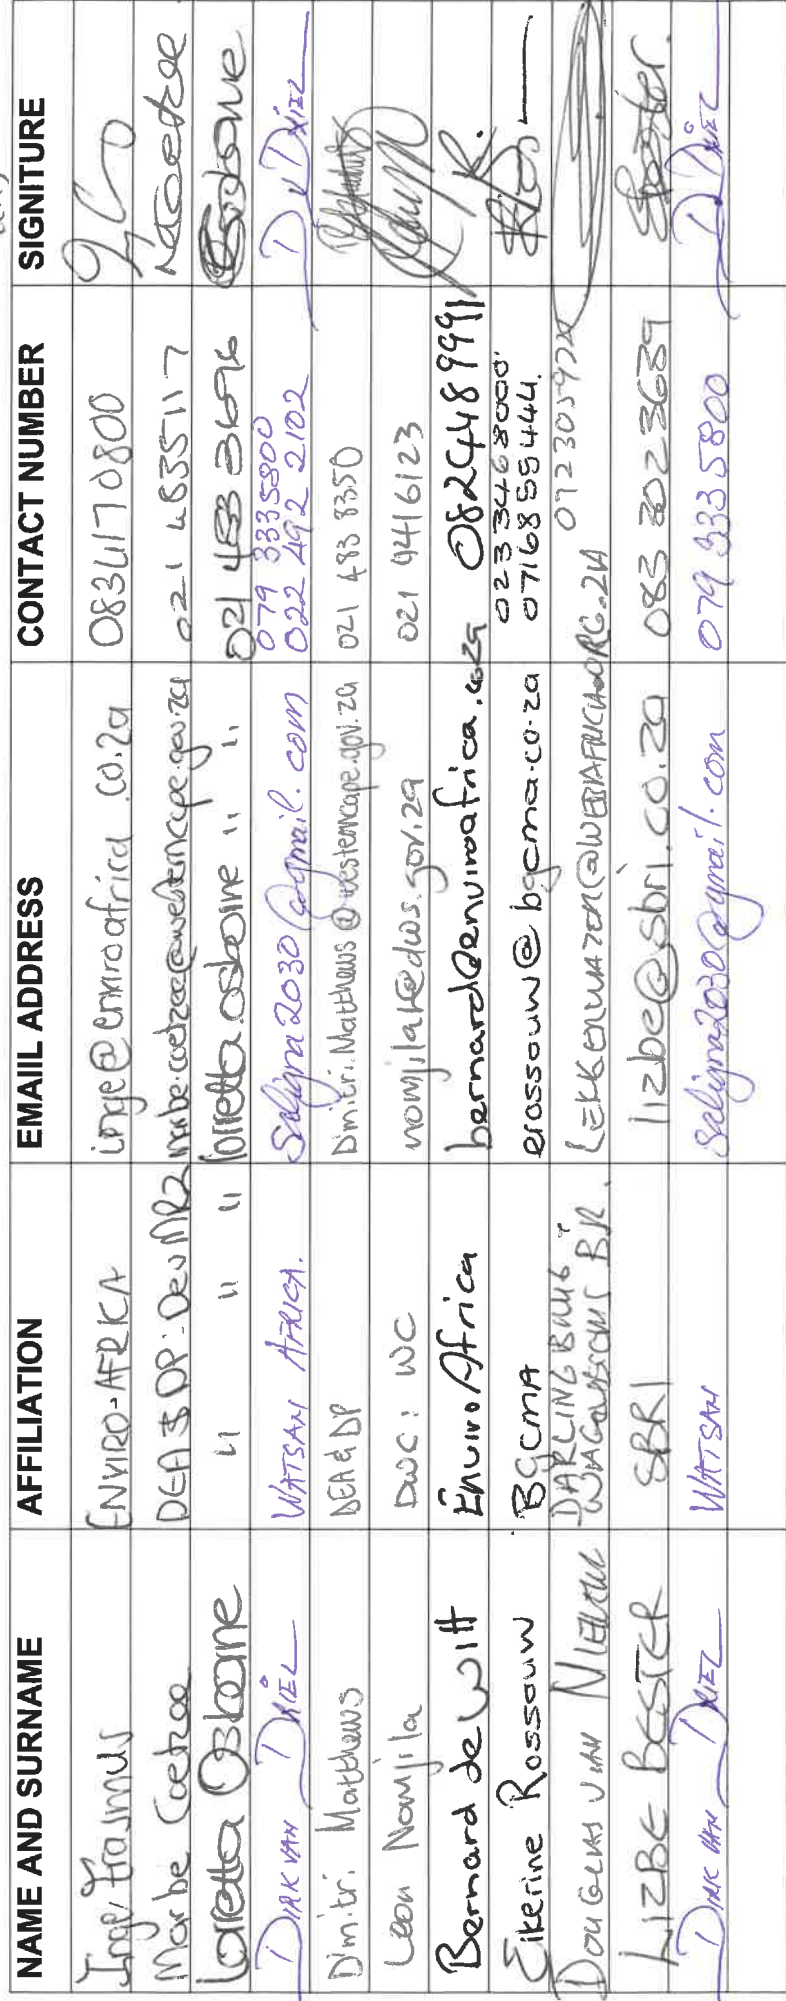 NAME AND SURNAME AFFILIATION EMAIIL ADDRESS CONTACT NUMBER SIGNITURE
Inge Erasmus ENVIRO-AFRICA inge@enviroafrica.co.za 0834170800
Marbe Coetzee DEA&DP: Dev MR2 marbe.coetzee@westerncape.gov.za 021 4835117 MCoetzee
Loretta Osborne " " " loretta.osborne " " 021 483 3696 Osborne
DIRK VAN DRIEL WATSAN AFRICA. Saligna2030@gmail.com 079 3335800 D v DRIEL
022 492 2102
Dimitri. Matthews DEA & DP Dmitri.Matthews@westerncape.gov.za 021 483 8350
Leon Nomjila DWS: WC nomjilal@dws.gov.za 021 9416123
Bernard de Witt EnviroAfrica bernard@enviroafrica.co.za 0824489991
Elkerine Rossouw BGCMA erossouw@bgcma.co.za 023 346 8000
0716855444.
DOUGLAS VAN NIEKERK DARLING 072305972
LIZBE BESTER SBRI lizbe@sbri.co.za 083 302 3639
DIRK VAN DRIEL WATSAN Saligna2030@gmail.com 079 333 5800 D v DRIEL